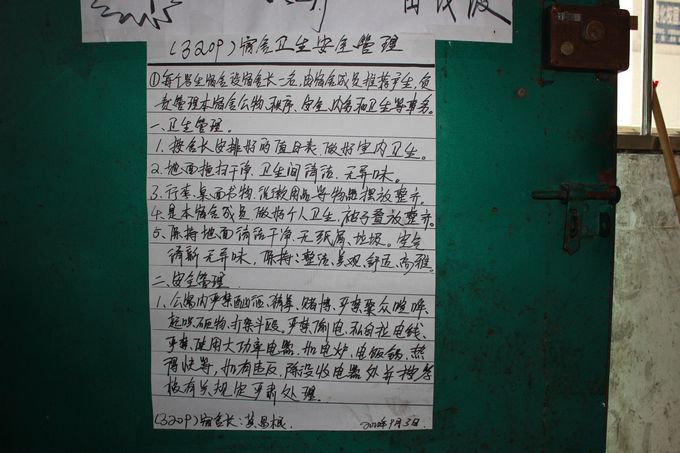 (3209)宿舍卫生安全管理
①每个男生宿舍设宿舍长一名,由宿舍成员推荐产生,负
责管理本宿舍公物、秩序、安全、内务和卫生等事务。
一、卫生管理。
1.按舍长安排好的值日表,做好室内卫生。
2.地面拖扫干净、卫生间清洁、无异味。
3.行李、桌面书物、洗漱用品等物品摆放整齐。
4.是本宿舍成员做好个人卫生,被子叠放整齐。
5.保持地面清洁干净、无纸屑、垃圾。空气
清新无异味,保持:整洁、美观、舒适、高雅。
二、安全管理
1.公寓内严禁酗酒、猜拳、赌博、严禁聚众喧哗、
起哄、砸物、打架斗殴。严禁偷电、私自拉电线、
严禁使用大功率电器,如电炉、电饭锅、热
得快等,如有违反,除没收电器外并按学
校有关规定严肃处理。
(3209)宿舍长:黄昌根
9月3日